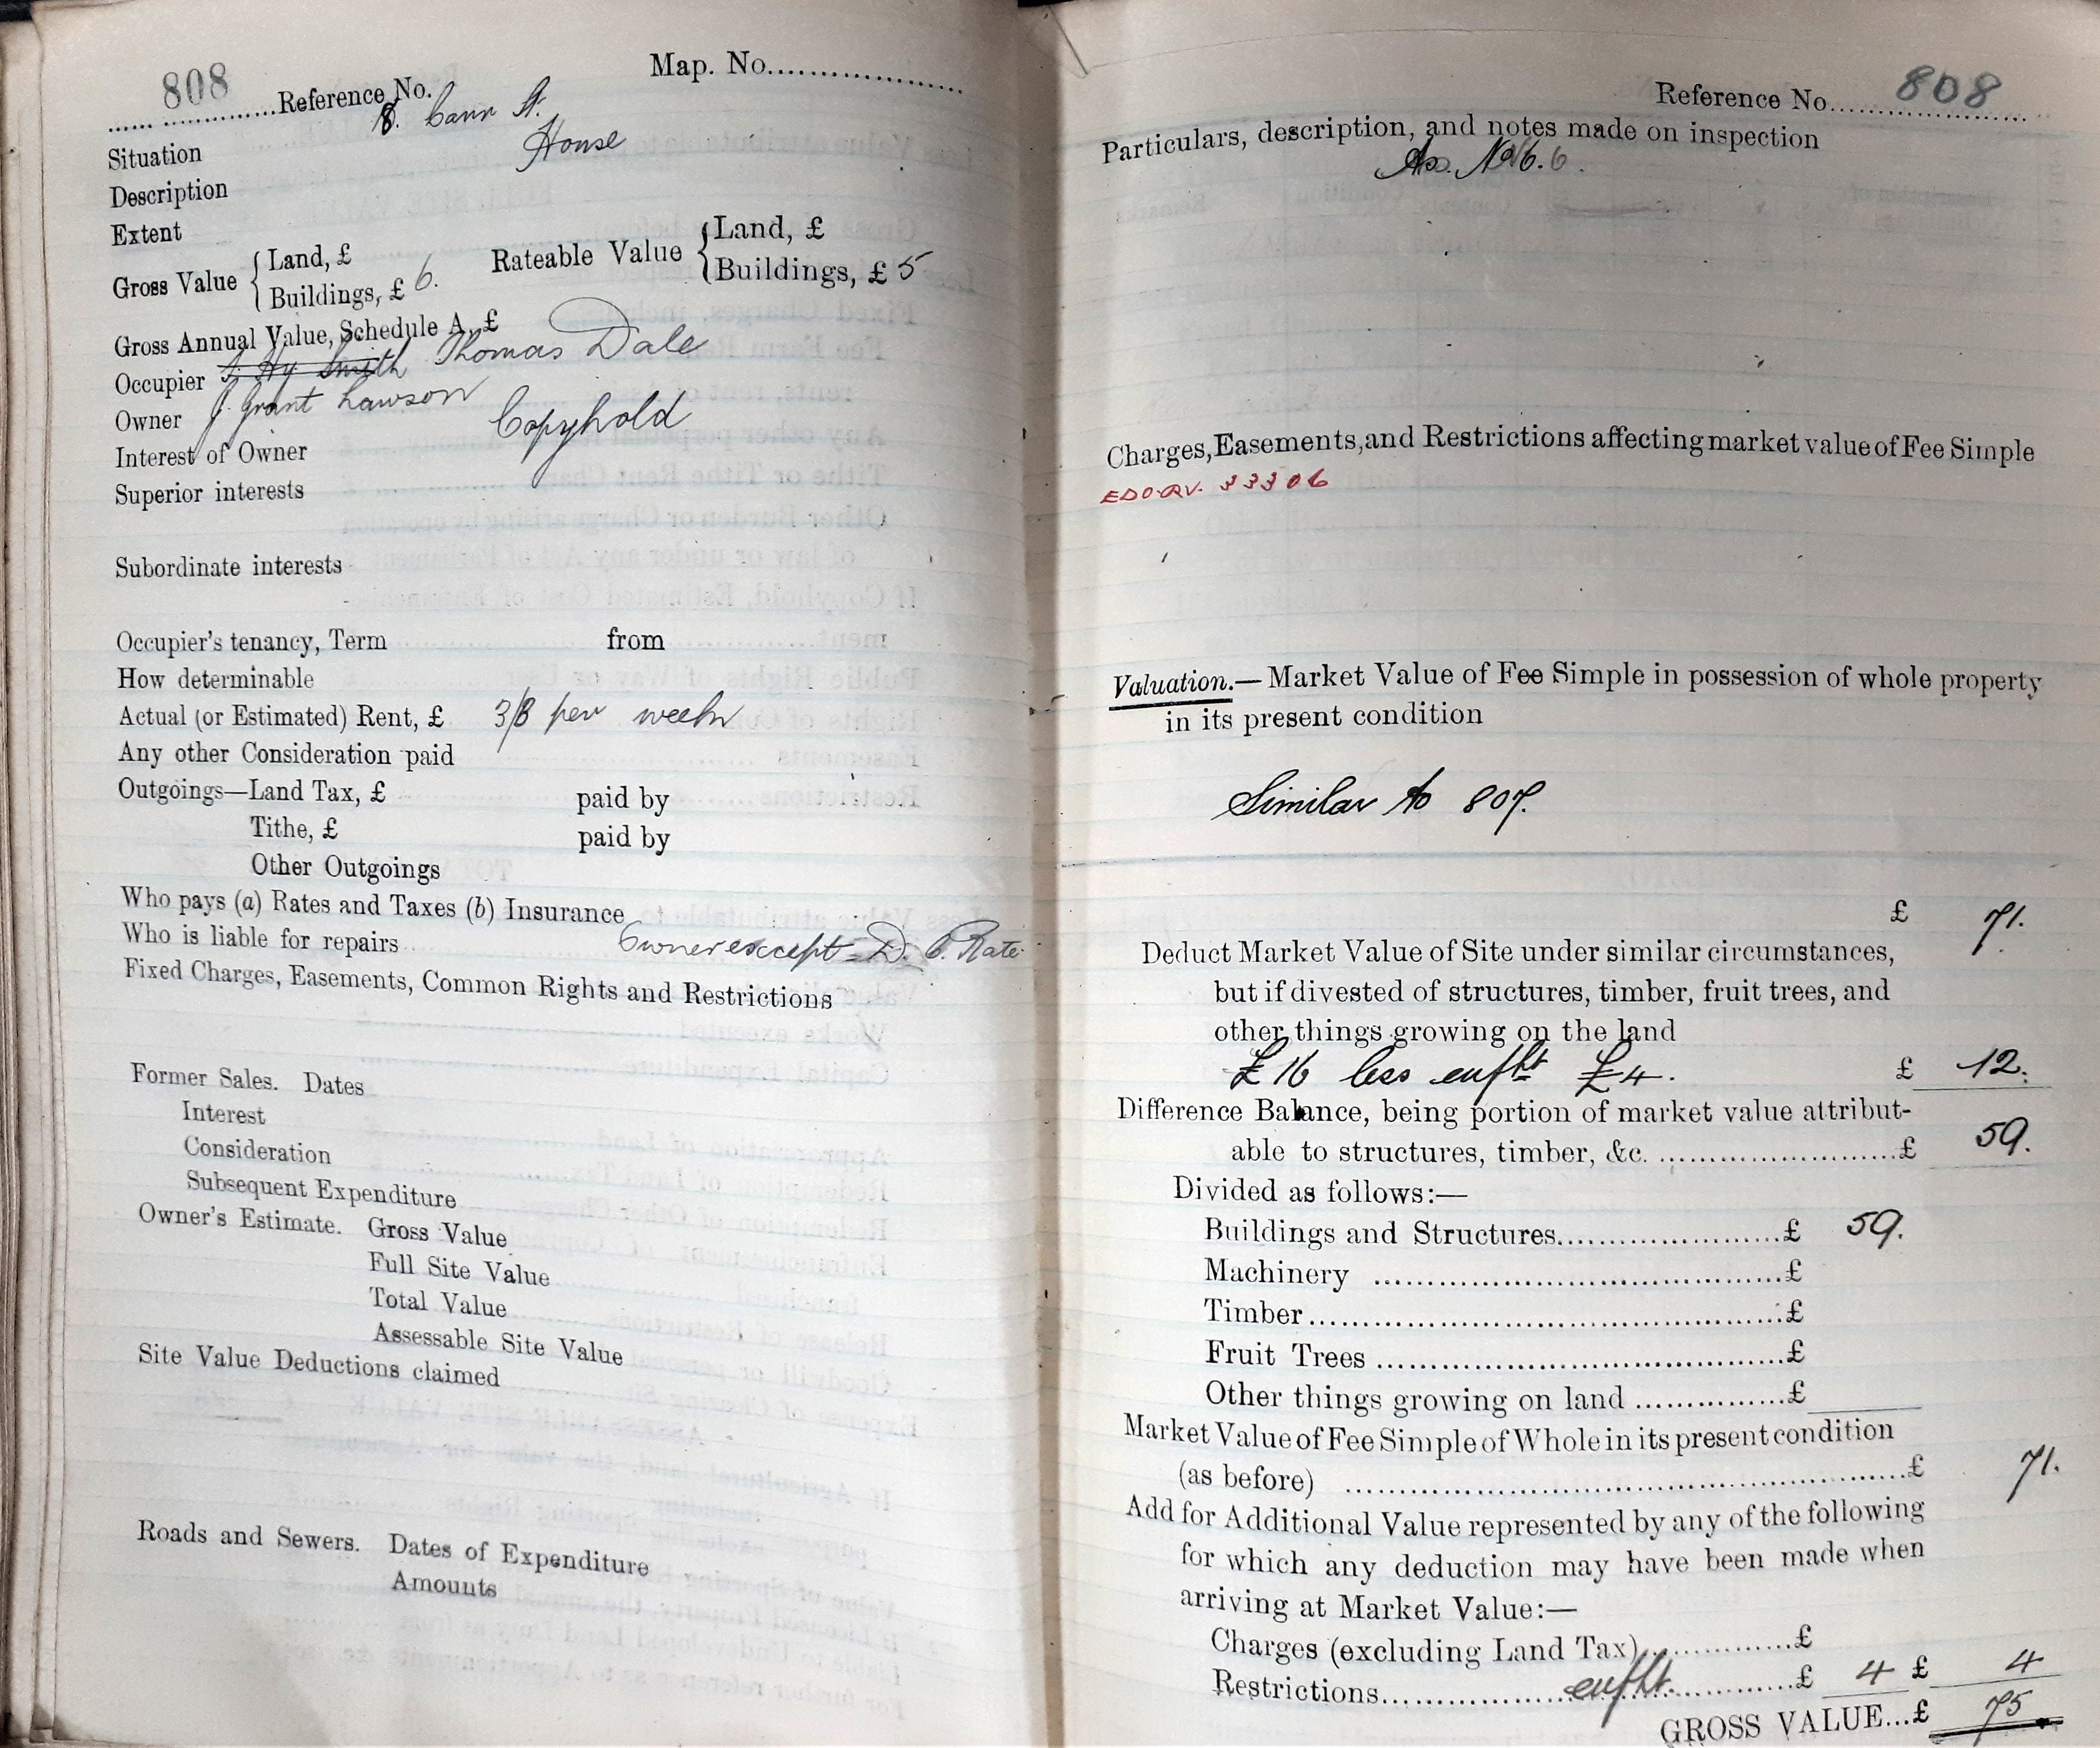 808
Map. No.....................
...... ...............Reference No.
8. Carr St.
Situation
House
Description
Extent
Gross Value { Land, £
Buildings, £ 6.
Rateable Value { Land, £
Buildings, £ 5
Gross Annual Value, Schedule A, £
Occupier J. Hy Smith Thomas Dale
Owner J. Grant Lawson
Interest of Owner Copyhold
Superior interests
Subordinate interests
Occupier's tenancy, Term from
How determinable
Actual (or Estimated) Rent, £ 3/8 per week
Any other Consideration paid
Outgoings—Land Tax, £ paid by
Tithe, £ paid by
Other Outgoings
Who pays (a) Rates and Taxes (b) Insurance
Who is liable for repairs Owner except D. C. Rate
Fixed Charges, Easements, Common Rights and Restrictions
Former Sales. Dates
Interest
Consideration
Subsequent Expenditure
Owner's Estimate. Gross Value
Full Site Value
Total Value
Assessable Site Value
Site Value Deductions claimed
Roads and Sewers. Dates of Expenditure
Amounts
Reference No. 808
Particulars, description, and notes made on inspection
As. No 6.
Charges, Easements, and Restrictions affecting market value of Fee Simple
33306
Valuation.—Market Value of Fee Simple in possession of whole property
in its present condition
Similar to 807.
£ 71.
Deduct Market Value of Site under similar circumstances,
but if divested of structures, timber, fruit trees, and
other things growing on the land
£16 less enfht £4. £ 12.
Difference Balance, being portion of market value attribut-
able to structures, timber, &c. ........................£ 59.
Divided as follows:—
Buildings and Structures......................£ 59.
Machinery .........................................£
Timber................................................£
Fruit Trees .........................................£
Other things growing on land ...............£
Market Value of Fee Simple of Whole in its present condition
(as before) ........................................................£ 71.
Add for Additional Value represented by any of the following
for which any deduction may have been made when
arriving at Market Value:—
Charges (excluding Land Tax)...............£
Restrictions.......enfht..............£ 4 £ 4
GROSS VALUE...£ 75